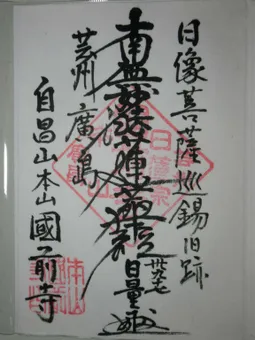 日像菩薩巡錫旧跡
南無妙法蓮華経
卅九七
日量
藝州廣嶋
自昌山本山國前寺
日蓮宗
本山